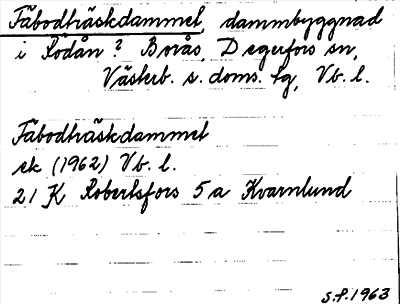 Fäbodträskdammet, dammbyggnad
i Rödån? Borås, Degerfors sn,
Västerb. s. doms. tg, Vb. l.
Fäbodträskdammet
ek (1962) Vb. l.
21 K Robertsfors 5a Kvarnlund
S.P. 1963